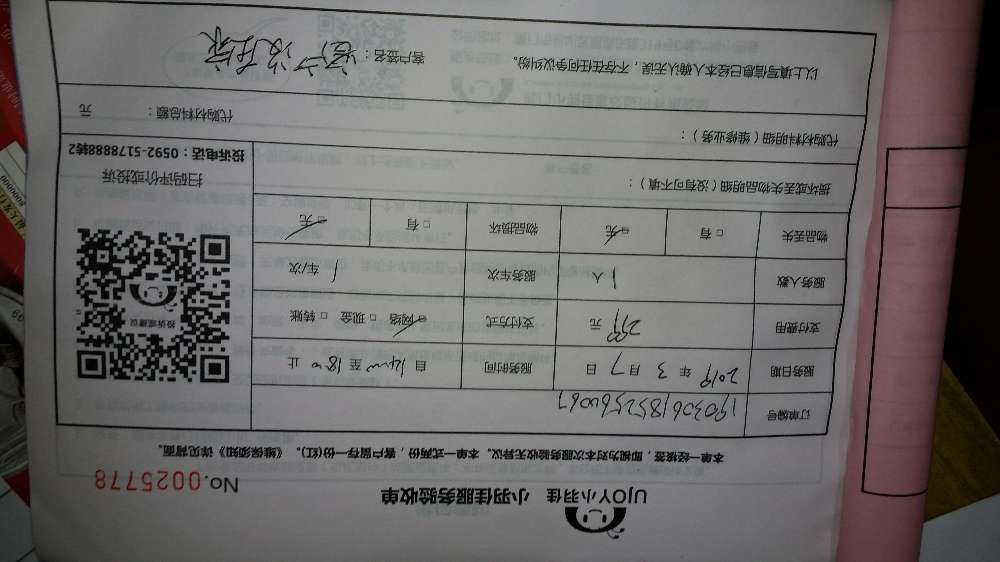 UJOY小羽佳 小羽佳服务验收单
No.0025778
本单一经接签,即视为对本次服务验收无异议。本单一式两份,客户留存一份(红)。《维保须知》详见背面。
订单编号 1903061852564067
服务日期 2019 年 3 月 7 日 服务时间 自 14:00 至 18:00 止
支付费用 299 元 支付方式 ☑网络 □现金 □转账
服务人数 1 人 服务车次 1 车/次
物品丢失 □有 ☑无 物品损坏 □有 ☑无
损坏或丢失物品明细(没有可不填):
投诉或建议
扫码评价或投诉
投诉电话:0592-5178888转2
代购材料明细(维修业务): 代购材料总额: 元
以上填写信息已经本人确认无误,不存在任何争议纠纷。 客户签名: